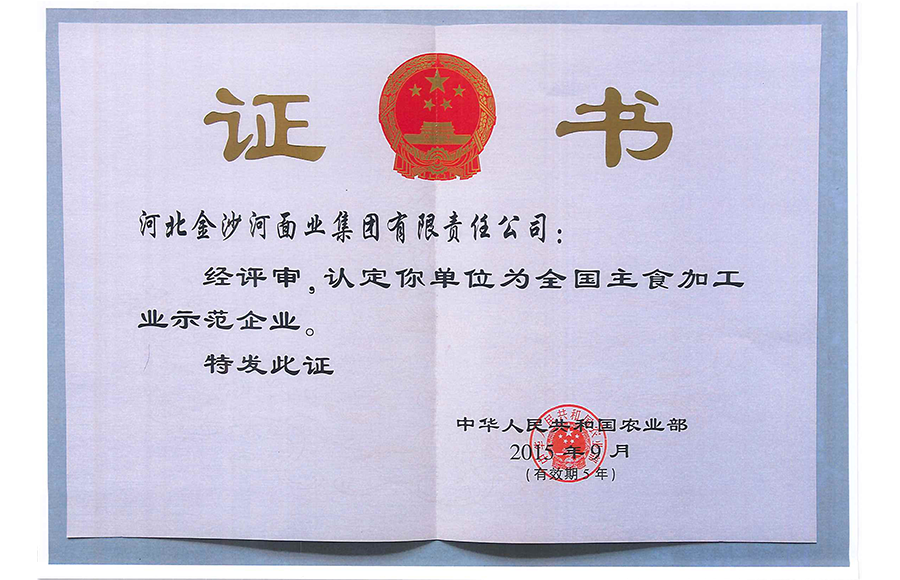 证书
河北金沙河面业集团有限责任公司：
经评审，认定你单位为全国主食加工
业示范企业。
特发此证
中华人民共和国农业部
2015年9月
（有效期5年）